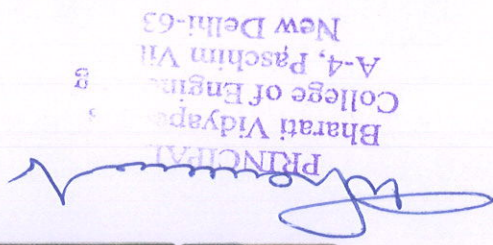 PRINCIPAL
Bharati Vidyape
College of Engine g
A-4, Paschim Vi
New Delhi-63